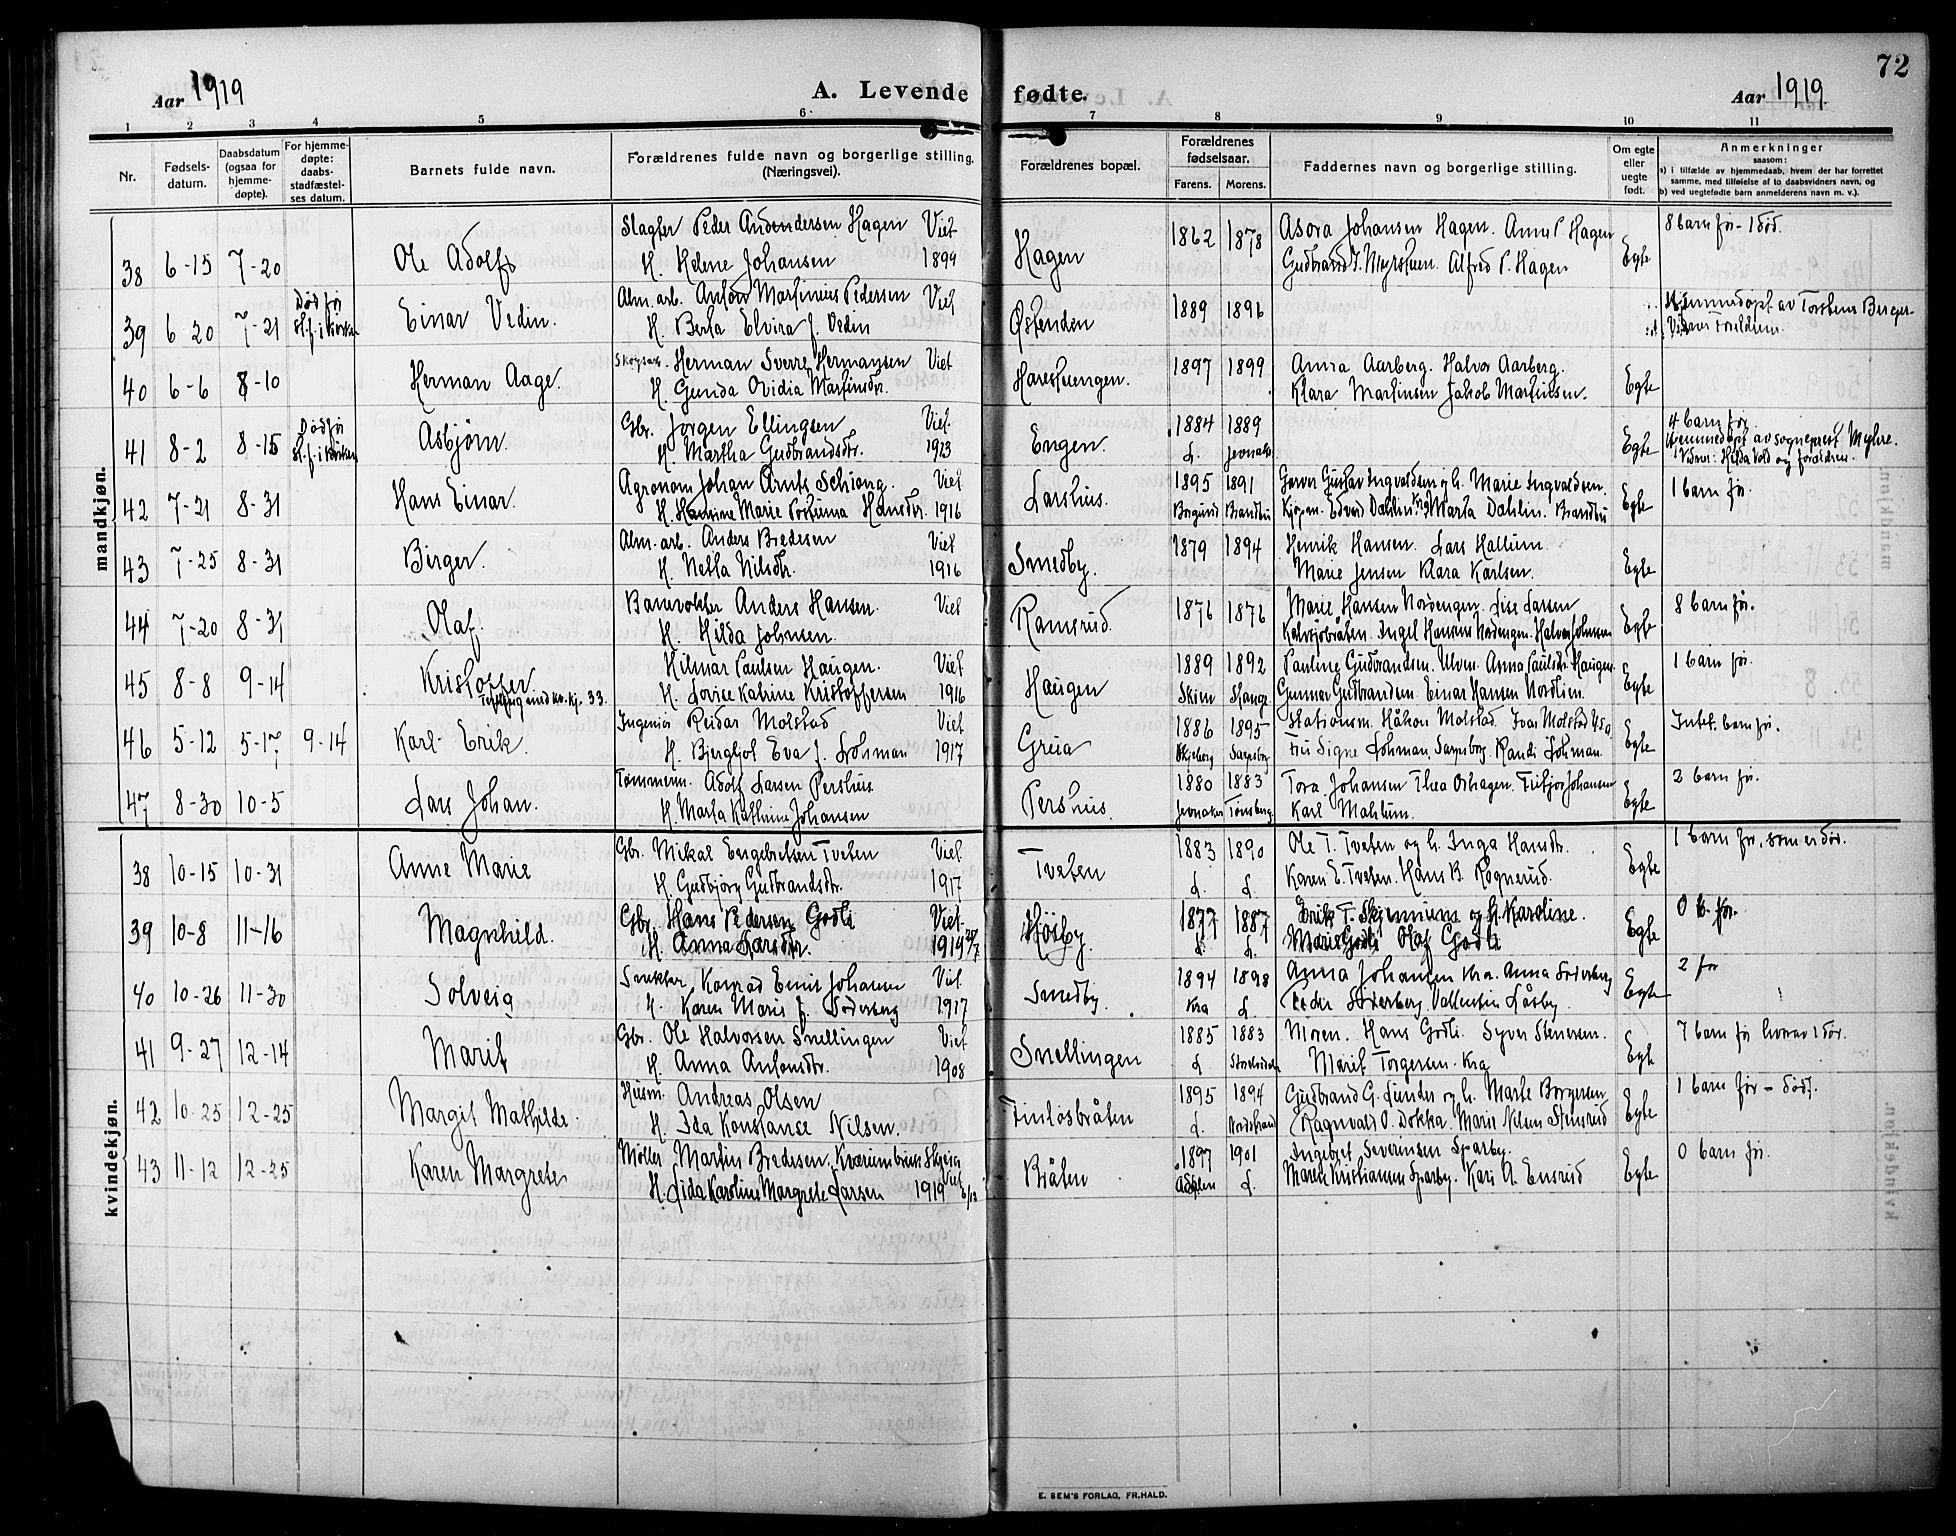 72
Aar 1919
A. Levende fødte.
Aar 1919
1 2 3 4 5 6 7 8 9 10 11
Nr.
Fødsels-datum.
Daabsdatum (ogsaa for hjemme-døpte).
For hjemme-døpte: daabs-stadfæstel-ses datum.
Barnets fulde navn.
Forældrenes fulde navn og borgerlige stilling.
(Næringsvei).
Forældrenes bopæl.
Forældrenes fødselsaar.
Farens. Morens.
Faddernes navn og borgerlige stilling.
Om egte eller uegte født.
Anmerkninger
saasom:
a) i tilfælde av hjemmedaab, hvem der har forrettet samme, med tilføielse af to daabsvidners navn, og
b) ved uegtefødte barn anmelderens navn m. v.).
mandkjøn.
38 6-15 7-20 Ole Adolf Slagter Peder Andersen Hagen Viet Hagen 1862 1878 Asora Johansen Hagen. Anne P. Hagen Egte 8 barn før - 1 død.
H. Helene Johansen 1899 Gudbrand J. Myrstuen. Alfred P. Hagen
39 6-20 7-21 Død før st.f. i kirken Einar Vedin. Alm. arb. Anton Martinius Pedersen Viet Østenden 1889 1896 Hjemmedøpt av Torstene Berger
H. Berta Elvira f. Vedin
40 6-6 8-10 Herman Aage. Herman Sverre Hermansen Viet Harestuengen. 1897 1899 Anna Aarberg. Halvor Aarberg. Egte
H. Gunda Ovidia Martinsdr. Klara Martinsen Jakob Martinsen.
41 8-2 8-15 Død før st.f. i kirken Asbjørn. Gbr. Jørgen Ellingsen Viet Engen. 1884 1889 Egte 4 barn før.
H. Martha Gudbrandsdtr. 1913 L. Jevnaker Hjemmedøpt av sogneprest Myhre.
Vidner: Hilda Vold og forældren.
42 7-21 8-31 Hans Einar. Agronom Johan Arnts Schiong. Viet Larshus. 1895 1891 Garver Gustav Ingvaldsen og h. Marie Ingvaldsen. Egte 1 barn før.
Marie Hansdtr. 1916 Borgund Brandbu Kjøpm. Edvard Dahlin Marta Dahlin. Brandbu
43 7-25 8-31 Birger. Alm. arb. Anders Bredesen Viet Smedby. 1879 1894 Henrik Hansen. Lars Hallum. Egte
H. Netta Nilsdtr. 1916 Marie Jensen Klara Karlsen.
44 7-20 8-31 Olaf. Banevokter Anders Hansen. Viet Ramsrud. 1876 1876 Marie Hansen Nordengen. Lise Larsen Egte 8 barn før.
H. Hilda Johnsen. Kalvsjøbråten. Ingel Hansen Nordengen. Halvor Johnsen
45 8-8 9-14 Kristoffer Hilmar Paulsen Haugen. Viet Haugen 1889 1892 Pauline Gudbrandsen. Ulven. Anna Paulsdr. Haugen Egte 1 barn før.
H. Lovise Katrine Kristoffersen 1916 Skien Stange Gunnar Gudbrandsen. Einar Hansen Nordlien.
46 5-12 5-17 9-14 Karl Erik. Ingeniør Reidar Molstad Viet Grua 1886 1895 Stationsm. Håkon Molstad. Ivar Molstad Egte Intet barn før.
H. Bjergljot Eva f. Lohman 1917 Sarpsborg Fru Signe Lohman, Sarpsborg. Randi Lohman.
47 8-30 10-5 Lars Johan. Tømmerm. Adolf Larsen Pershus Pershus. 1880 1883 Tora Johansen Thea Orhagen. Johansen Egte 2 barn før.
H. Marta Kathrine Johansen Jevnaker Tønsberg Karl Mahlum.
kvindekjøn.
38 10-15 10-31 Anne Marie Gbr. Mikal Engebretsen Tveten Viet Tveten 1883 1890 Ole T. Tveten og h. Inga Hansdtr. Egte 1 barn før, som er død.
H. Gudbjørg Gudbrandsdtr. 1917 L. L. Karen E. Tveten. Hans B. Rognerud.
39 10-8 11-16 Magnhild. Gbr. Hans Pedersen Godli Viet Høiby. 1877 1887 Erik T. Skjerviens og H. Karoline. Egte 0 b. før.
H. Anna Larsdtr. 1919 L. L. Marie Godli Olaf Godli
40 10-26 11-30 Solveig Snekker Konrad Emil Johansen Viet Smedby. 1894 1898 Anna Johansen Kra. Anna Søderberg Egte 2 før
H. Karen Marie f. Søderberg 1917 Kra L. Peder Søderberg Vallentin Låsby.
41 9-27 12-14 Marit Gbr. Ole Halvorsen Snellingen Viet Snellingen 1885 1883 Moren. Hans Godli. Syver Stenersen. Egte 7 barn før hvorav 1 død.
H. Anna Antonsdtr. 1908 L Marit Torgersen. Kra
42 10-25 12-25 Margit Mathilde. Husm. Andreas Olsen Finlösbråten 1895 1894 Gudbrand G. Lunder og h. Marte Borgersen Egte 1 barn før - dødf.
H. Ida Konstance Nilsen. L. Nordstrand Ragnvald O. Dokka. Marie Nilsen Stensrud
43 11-12 12-25 Karen Margrete Møller Martin Bredesen. Bråten 1897 1901 Ingebret Severinsen Sparby. Egte 0 barn før.
H. Lida Karoline Margrete Larsen 1919 Viet 6/12 Adalen L. Maren Kristiansen Sparby. Kari A. Ensrud
E. SEM'S FORLAG, FR.HALD.